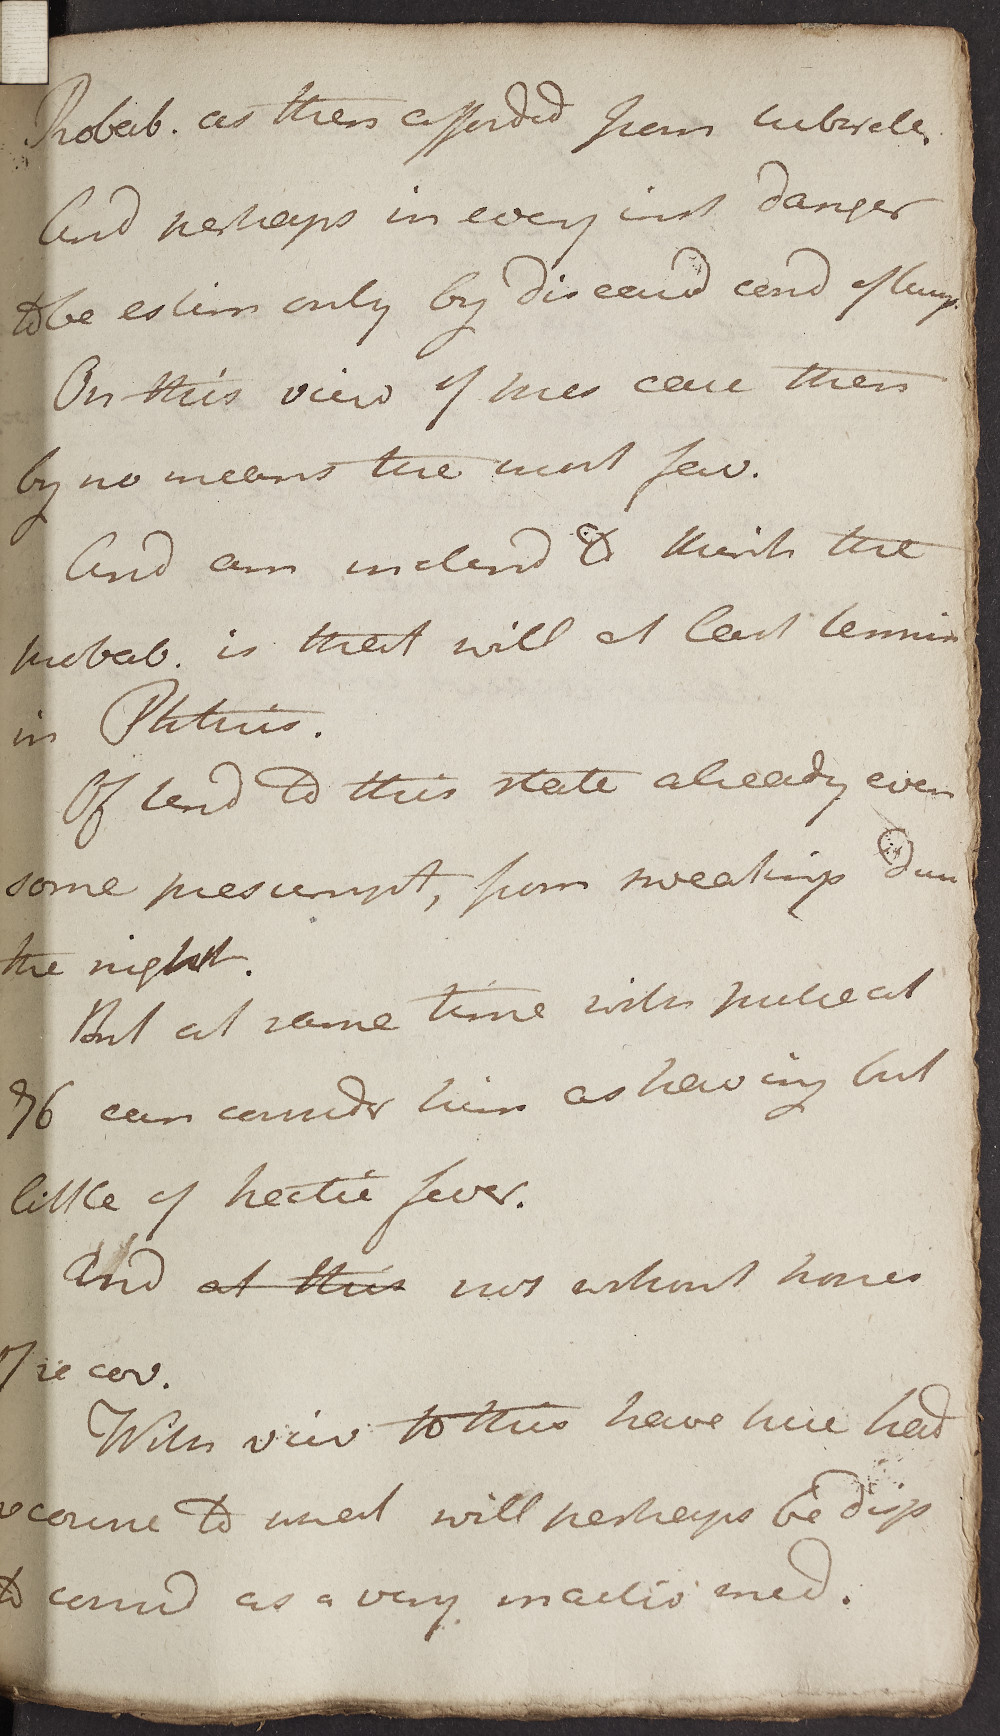 Probab. as then afforded from tubercle.
And perhaps in every inst danger
to be estim only by diseasd cond of lung.
On this view of pres case then
by no means the most fav.
And am inclend to think the
probab. is that will at last termin
in Phthisis.
Of tend to this state already even
some presumpt, from sweatings dur
the night.
But at same time with pulse at
76 can consider him as having but
little of hectic fever.
And at this not without hopes
of recov.
With view to this have here had
recourse to what will perhaps be disp
to consid as a very inactiv med.